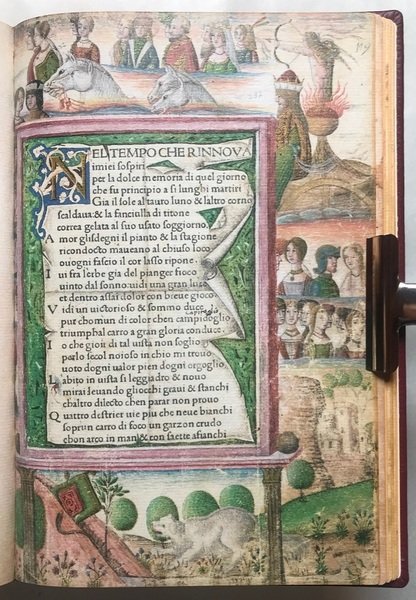 NEL TEMPO CHE RINNOVA
imiei sospiri
per la dolce memoria di quel giorno
che fu principio a si lunghi martiri
Gia il sole al tauro luno & laltro corno
scaldaua:& la fanciulla di titone
correa gelata al suo usato soggiorno.
A mor glisdegni il pianto & la stagione
ricondocto maueano al chiuso loco
ouogni fascio il cor lasso ripone.
I ui fra lerbe gia del pianger fioco
uinto dal sonno:uidi una gran luce
et dentro assai dolor con brieue gioco
V idi un uictorioso & sommo duce
pur chomun di color chen campidoglio
triumphal carro a gran gloria conduce.
I o che gioir di tal uista non soglio
perlo secol noioso in chio mi trouo
uoto dogni ualor pien dogni orgoglio,
L abito in uista si leggiadro & nouo
mirai leuando gliocchi graui & stanchi
chaltro dilecto chen parar non prouo
Q uattro destrier uie piu che neue bianchi
soprun carro di foco un garzon crudo
chon arco in man & con saette afianchi